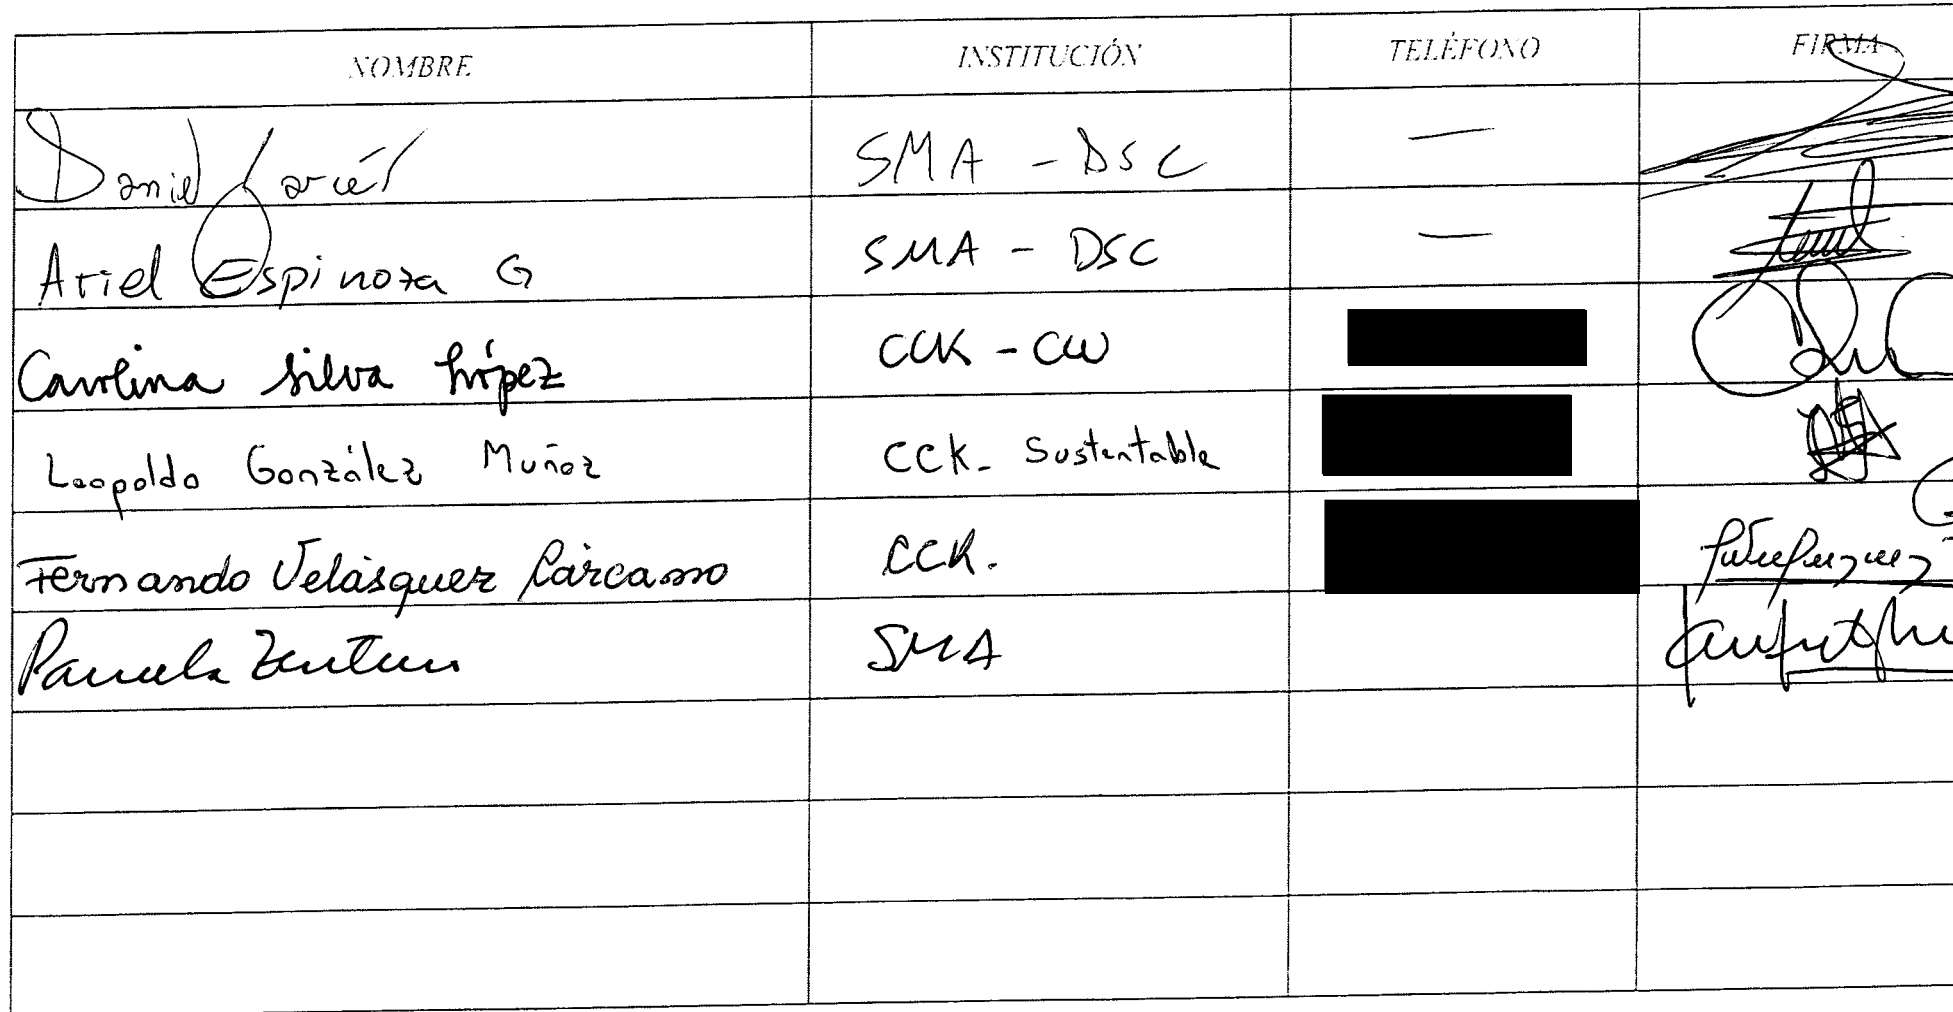 NOMBRE INSTITUCIÓN TELÉFONO FIRMA
Daniel Garcés SMA - DSC —
Ariel Espinoza G SMA - DSC —
Carolina Silva López CCK - CW
Leopoldo González Muñoz CCK - Sustentable
Fernando Velásquez Cárcamo CCK.
Pamela Zenteno SMA